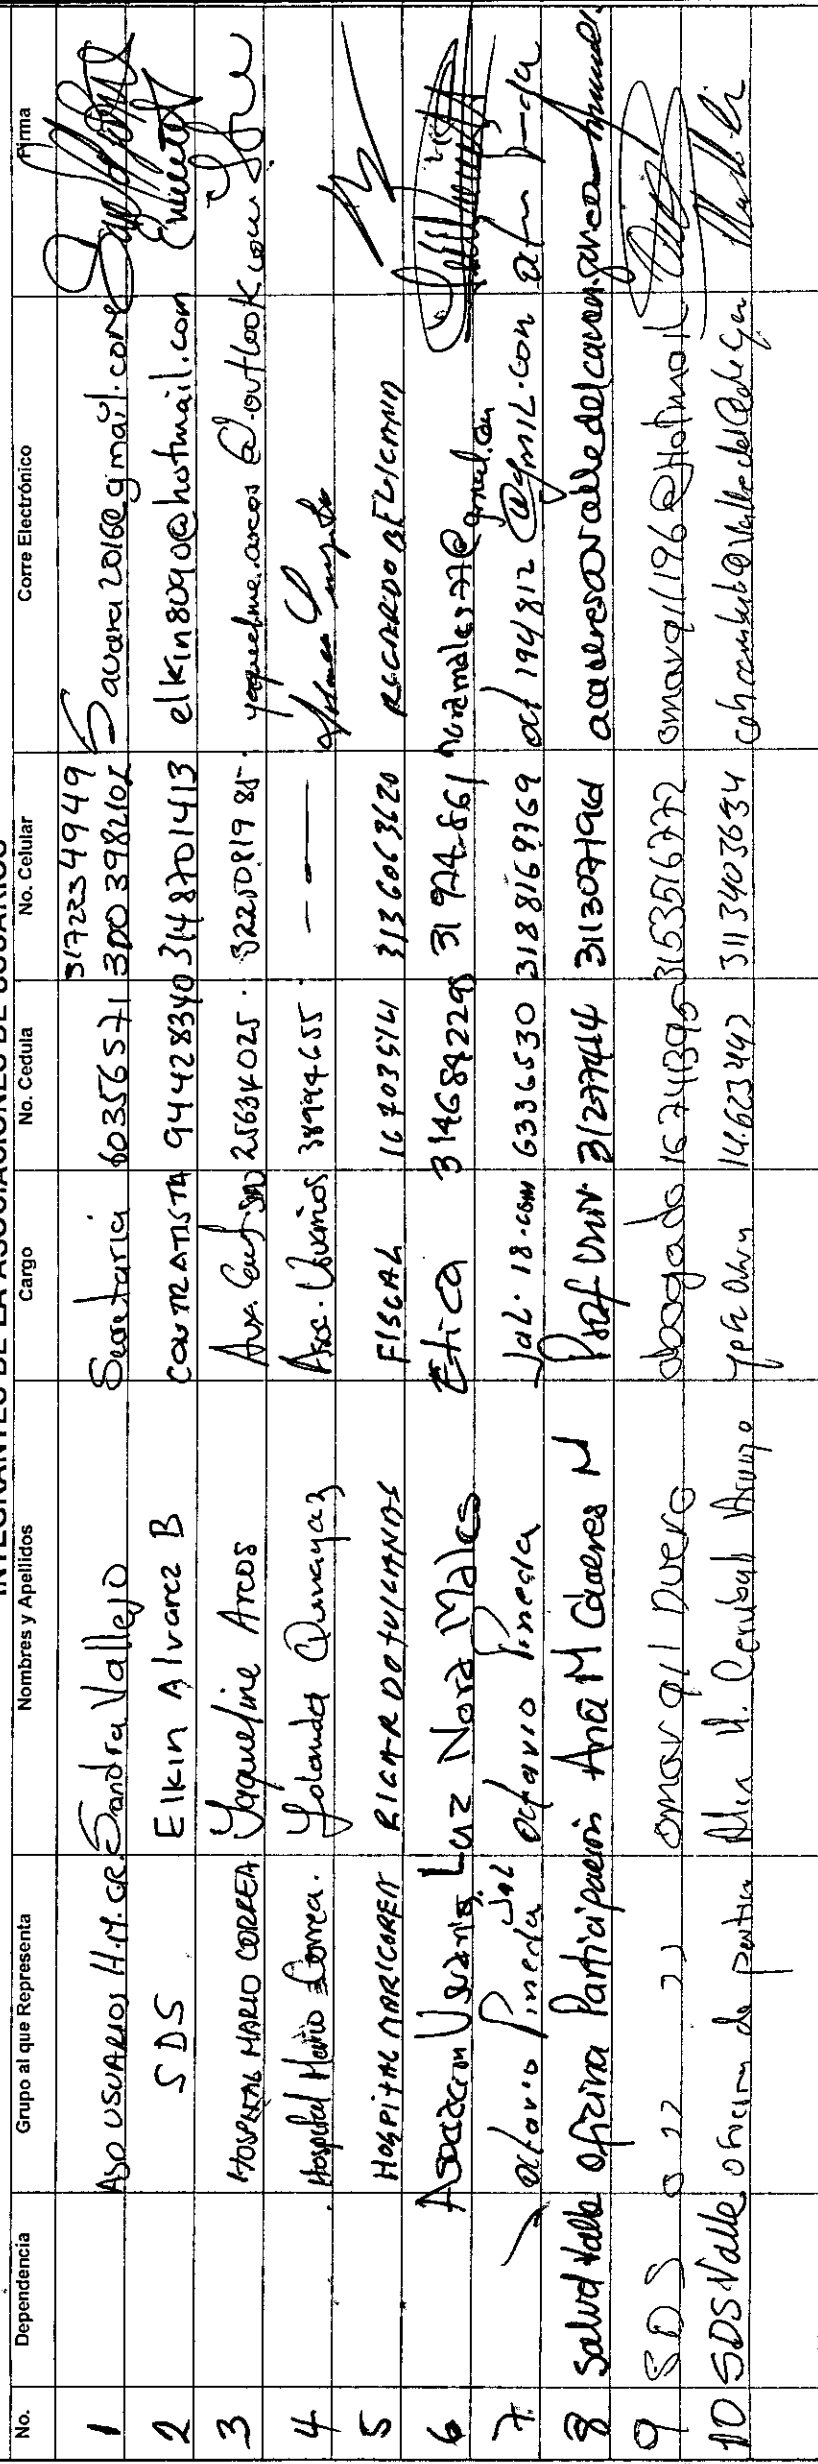 INTEGRANTES DE LA ASOCIACIONES DE USUARIOS
No. Dependencia Grupo al que Representa Nombres y Apellidos Cargo No. Cedula No. Celular Corre Electrónico Firma
3172234949
1 ASO USUARIOS H.M.CR. Sandra Vallejo Secretaria 60356571 3003982102 Savara2016@gmail.com
2 SDS Elkin Alvarez B CONTRATISTA 94428340 3148701413 elkin8090@hotmail.com
3 HOSPITAL MARIO CORREA Yaqueline Arcos Aux. 25634025. 3225081985. yaqueline.arcos@outlook.com
4 Hospital Mario Correa. Yolanda Asoc. Usuarios 38994655 ---
5 HOSPITAL MARICOREA RICARDO FISCAL 16703514 3136063620
6 Asociacion Usuarios Luz Nora Males Etica 3146842298 31974861 noramales77@gmail.com
7 octavio Pineda Jal octavio Pineda Jal. 18-com 6336530 3188169769 oct194812@gmil.con
8 Salud Valle Ofizina Participación Ana M Cáceres M Prof Univ. 31277414 311307196
9 SDS " " " omar gil Duero abogado 16741395 3153516772 omargil1196@Hotmail
10 SDS Valle oficina de 14.623442 3113403634